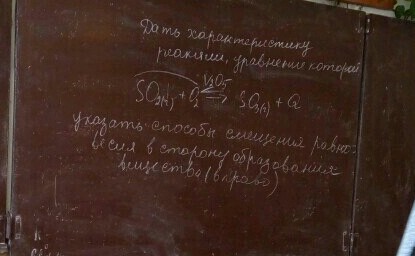 Дать характеристику
реакции, уравнение которой
V₂O₅
SO₂(г) + O₂ ⇄ SO₃(г) + Q
указать способы смещения равно-
весия в сторону образования
вещества (вправо)